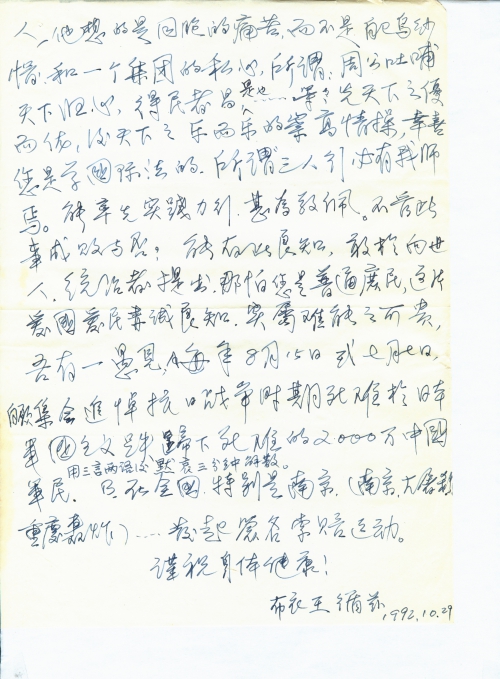 人，他想的是同胞的痛苦，而不是自己乌纱
惜和一个集团的私心，所谓：周公吐哺
天下归心，得民者昌是也……等等先天下之優
而优，後天下之乐而乐的崇高情操，幸喜
您是学國际法的，所谓三人引必有我师
焉。能率先实踐力引，甚为敬佩。不管此
事成败与否？能有此良知，敢於向世
人，统治者提出，那怕您是普通庶民，这片
爱國爱民真诚良知，实屬难能之可贵，
吾有一愚見，每年8月15日或七月七日，
自发集会追悼抗日战争时期死难於日本
軍國主义蹄下死难的2000万中國
用三言两语後默哀三分钟解散。
軍民，只在全國，特别是南京，（南京大屠殺
重慶轰炸）……发起签名索赔运动。
谨祝身体健康！
布衣王
1992.10.29